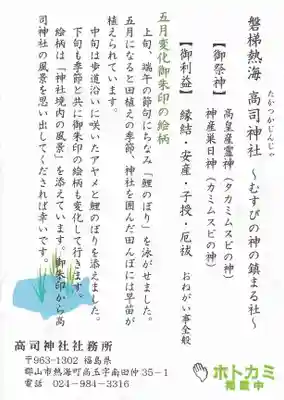 磐梯熱海 高司神社 ～むすびの神の鎮まる社～
たかつかじんじゃ
【御祭神】 高皇産霊神（タカミムスビの神）
神産巣日神（カミムスビの神）
【御利益】 縁結・安産・子授・厄祓 おねがい事全般
五月変化御朱印の絵柄
上旬、端午の節句にちなみ「鯉のぼり」を泳がせました。
五月になると田植えの季節、神社を囲んだ田んぼには早苗が
植えられています。
中旬は歩道沿いに咲いたアヤメと鯉のぼりを添えました。
下旬も季節と共に御朱印の絵柄も変化して行きます。
絵柄は「神社境内の風景」を添えています。御朱印から高
司神社の風景を思い出してくだされば幸いです。
高司神社社務所
〒963-1302 福島県
郡山市熱海町高玉字南田仲35-1
電話 024-984-3316
ホトカミ
掲載中